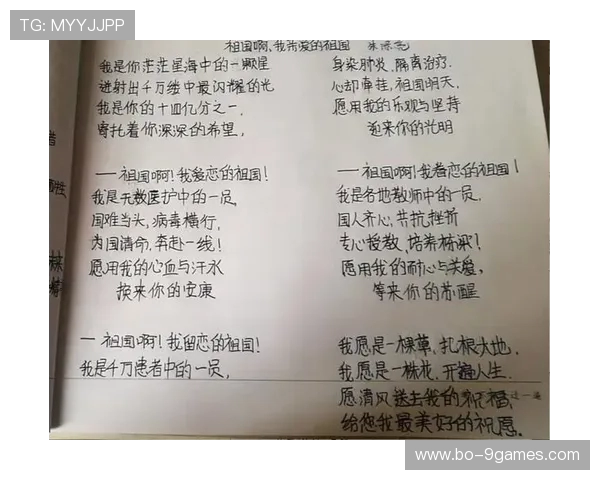 TG: MYYJJPP
祖国啊,我亲爱的祖国
我是你茫茫星海中的一颗星
迸射出千万缕中最闪耀的光
我是你的十四亿分之一,
寄托着你深深的希望,
——祖国啊!我爱恋的祖国!
我是无数医护中的一员
国难当头,病毒横行,
为国请命,奔赴一线!
愿用我的心血与汗水
换来你的安康
—祖国啊!我留恋的祖国!
我是千万患者中的一员,
身染肺炎,隔离治疗.
心却牵挂,祖国明天,
愿用我的乐观与坚持
迎来你的光明
——祖国啊!我眷恋的祖国!
我是各地教师中的一员.
国人齐心,共抗挫折
专心授教,培养栋梁!
愿用我的耐心与关爱,
等来你的苏醒
我愿是一棵草,扎根大地.
我愿是一株花,开遍人生.
愿清风送去我的祝福,
给您我最美好的祝愿。
www.bo-9games.com